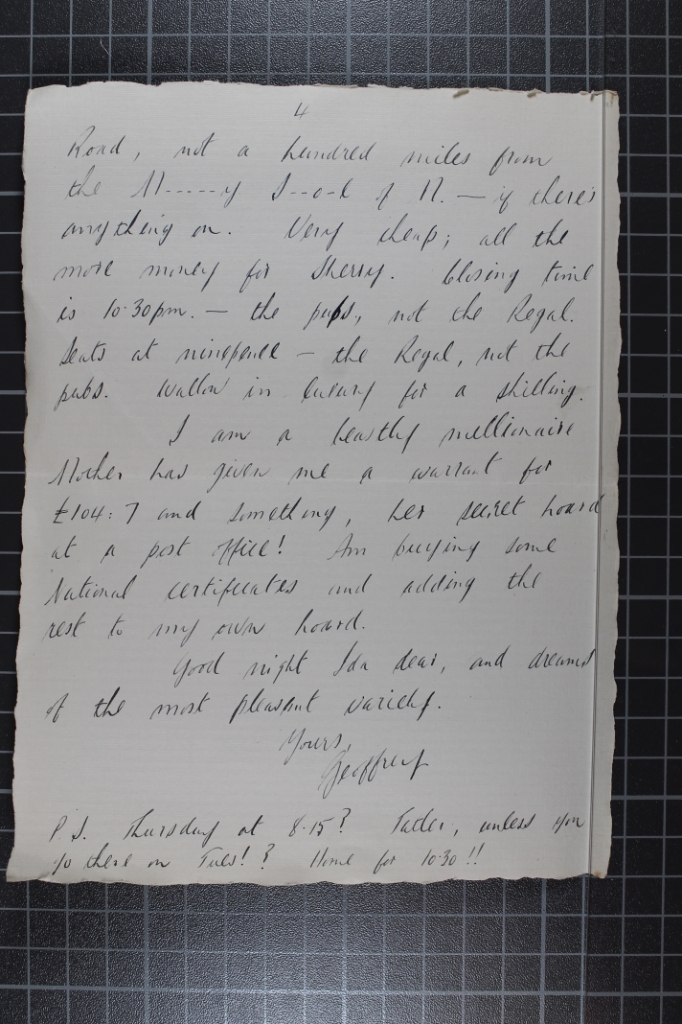 4
Road, not a hundred miles from
the M-----y S--o-l of M. — if there's
anything on. Very cheap; all the
more money for sherry. Closing time
is 10.30pm. — the pubs, not the Regal.
Seats at ninepence — the Regal, not the
pubs. Wallow in luxury for a shilling.
I am a beastly millionaire
Mother has given me a warrant for
£104:7 and something, her secret hoard
at a post office! Am buying some
National certificates and adding the
rest to my own hoard.
Good night Ida dear, and dreams
of the most pleasant variety.
Yours,
Geoffrey
P.S. Thursday at 8.15? Tatler, unless you
go there on Tues!? Home for 10.30!!